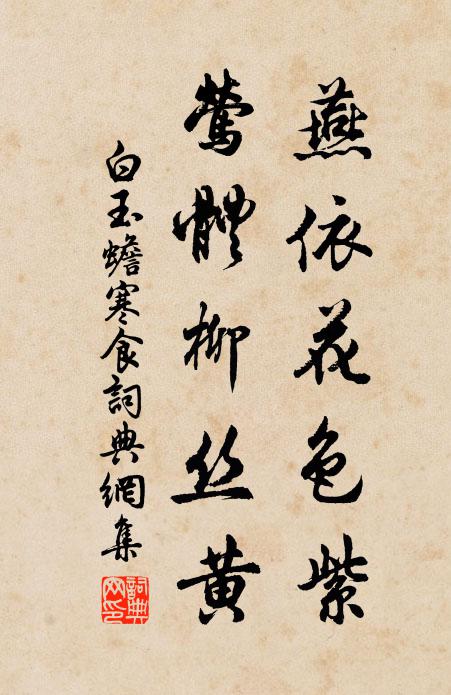 燕依花色紫
鶯體柳丝黄
白玉蟾寒食詞典網集
詞典
网印